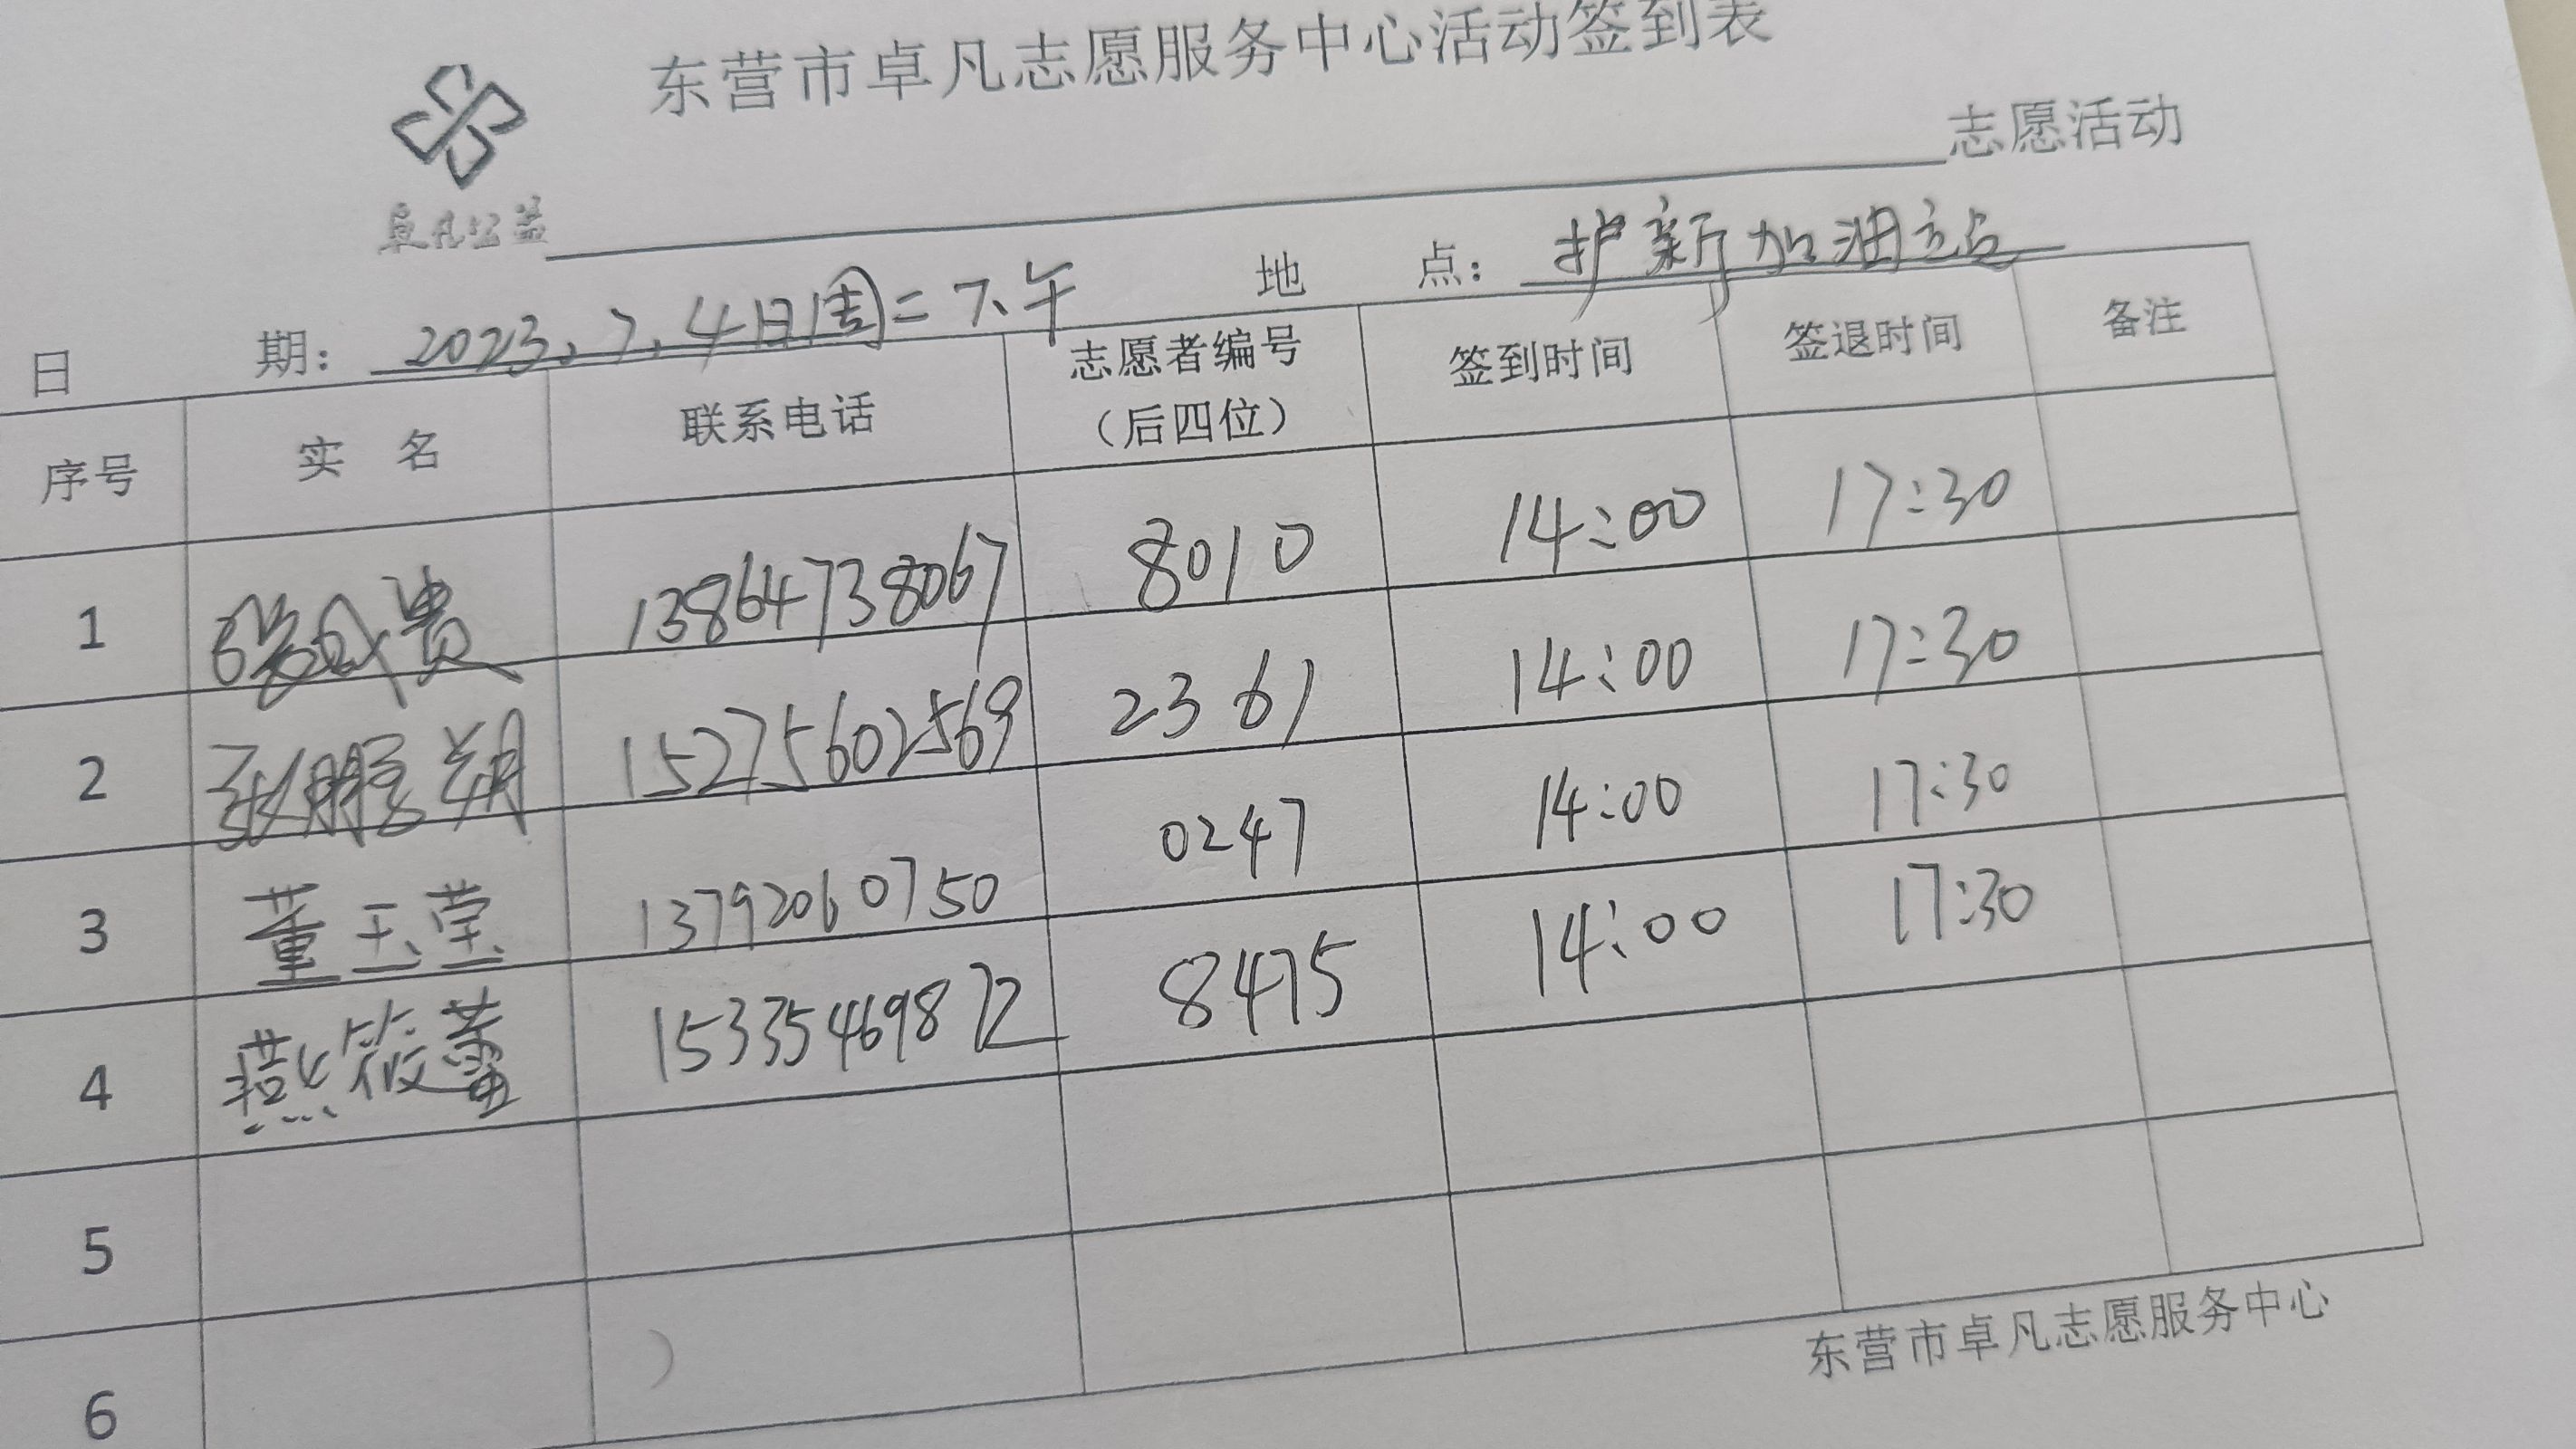 东营市卓凡志愿服务中心活动签到表
卓凡公益 志愿活动
日 期： 2023.7.4日周二下午 地 点： 护新加油站
序号 实 名 联系电话 志愿者编号（后四位） 签到时间 签退时间 备注
1 13864738067 8010 14:00 17:30
2 张鹏翔 15275602569 2361 14:00 17:30
3 董玉莹 13792060750 0247 14:00 17:30
4 燕筱蕾 15335469872 8475 14:00 17:30
5
6
东营市卓凡志愿服务中心